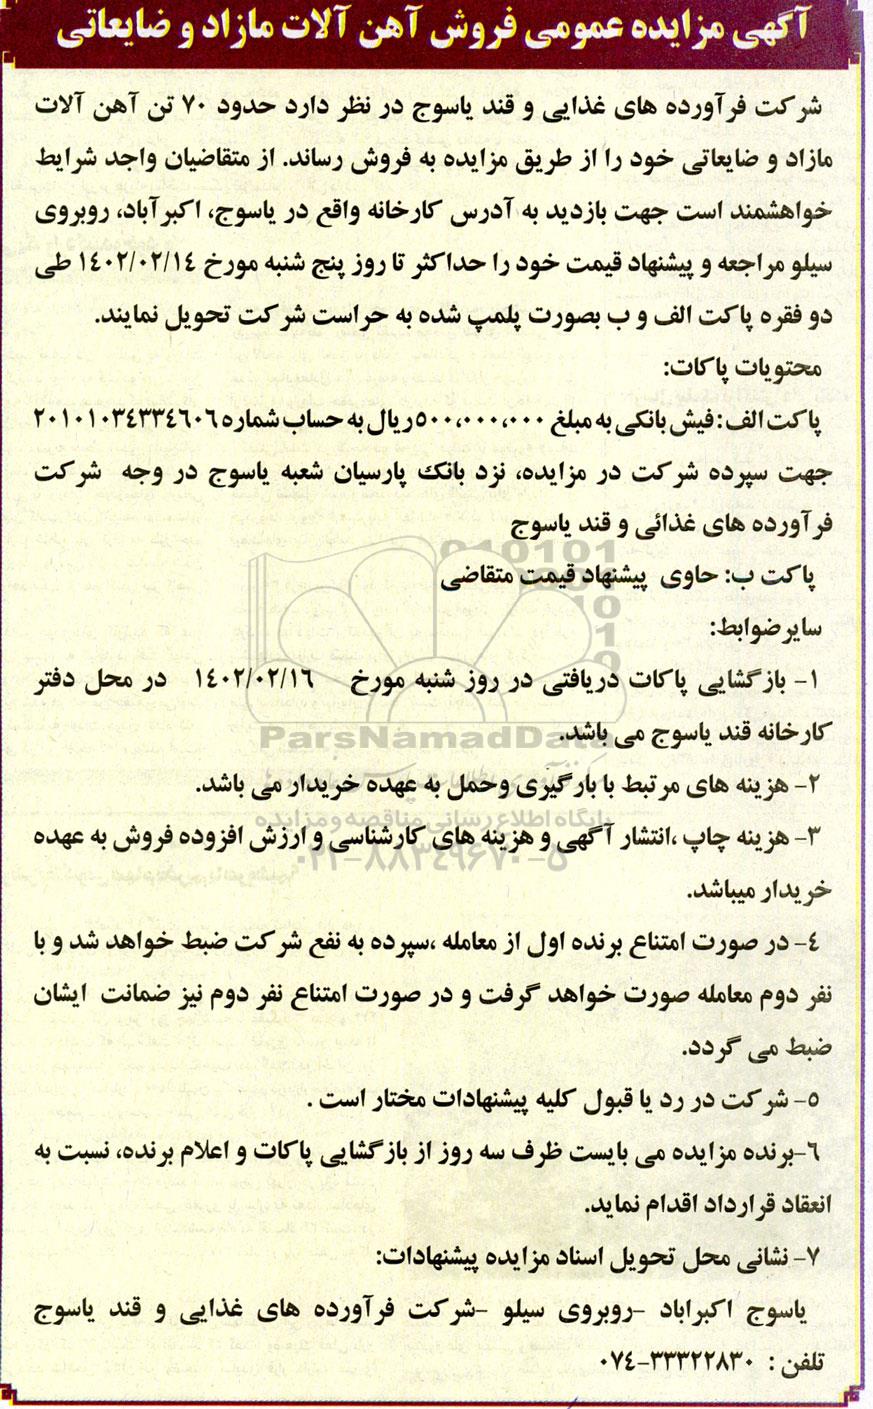 آگهی مزایده عمومی فروش آهن آلات مازاد و ضایعاتی
شرکت فرآورده های غذایی و قند یاسوج در نظر دارد حدود ۷۰ تن آهن آلات
مازاد و ضایعاتی خود را از طریق مزایده به فروش رساند. از متقاضیان واجد شرایط
خواهشمند است جهت بازدید به آدرس کارخانه واقع در یاسوج، اکبرآباد، روبروی
سیلو مراجعه و پیشنهاد قیمت خود را حداکثر تا روز پنج شنبه مورخ ۱٤۰۲/۰۲/۱٤ طی
دو فقره پاکت الف و ب بصورت پلمپ شده به حراست شرکت تحویل نمایند.
محتویات پاکات:
پاکت الف: فیش بانکی به مبلغ ۵۰۰،۰۰۰،۰۰۰ ریال به حساب شماره ۲۰۱۰۱۰۳٤۳۳٤٦۰٦
جهت سپرده شرکت در مزایده، نزد بانک پارسیان شعبه یاسوج در وجه شرکت
فرآورده های غذائی و قند یاسوج
پاکت ب: حاوی پیشنهاد قیمت متقاضی
سایرضوابط:
۱- بازگشایی پاکات دریافتی در روز شنبه مورخ ۱٤۰۲/۰۲/۱٦ در محل دفتر
کارخانه قند یاسوج می باشد.
ParsNamadData
۲- هزینه های مرتبط با بارگیری وحمل به عهده خریدار می باشد.
پایگاه اطلاع رسانی مناقصه و مزایده
۳- هزینه چاپ ،انتشار آگهی و هزینه های کارشناسی و ارزش افزوده فروش به عهده
۰۲۱-۸۸۳٤۹٦۷۰-۵
خریدار میباشد.
٤- در صورت امتناع برنده اول از معامله ،سپرده به نفع شرکت ضبط خواهد شد و با
نفر دوم معامله صورت خواهد گرفت و در صورت امتناع نفر دوم نیز ضمانت ایشان
ضبط می گردد.
۵- شرکت در رد یا قبول کلیه پیشنهادات مختار است .
٦-برنده مزایده می بایست ظرف سه روز از بازگشایی پاکات و اعلام برنده، نسبت به
انعقاد قرارداد اقدام نماید.
۷- نشانی محل تحویل اسناد مزایده پیشنهادات:
یاسوج اکبراباد -روبروی سیلو -شرکت فرآورده های غذایی و قند یاسوج
تلفن : ۳۳۳۲۲۸۳۰-۰۷٤